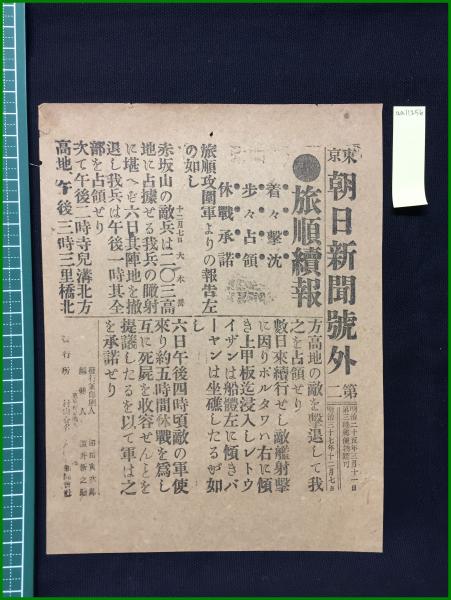 東京朝日新聞號外
第二
明治二十五年三月十一日
第三種郵便物認可
明治三十七年十二月七日
●旅順續報
着々擊沈
步々占領
休戰承諾
十二月七日大本營
旅順攻圍軍よりの報告左
の如し
赤坂山の敵兵は二〇三高
地に占據せる我兵の瞰射
に堪へず六日其陣地を撤
退し我兵は午後一時其全
部を占領せり
次て午後二時寺兒溝北方
高地午後三時三里橋北
方高地の敵を擊退して我
之を占領せり
數日來續行せし敵艦射擊
に因りポルタワハ右に傾
き上甲板迄浸入しレトウ
イザンは船體左に傾きバ
ーヤンは坐礁したるが如
し
六日午後四時頃敵の軍使
來り約五時間休戰を爲し
互に死屍を收容せんとを
提議したるを以て軍は之
を承諾せり
發行兼印刷人
編輯人
行所